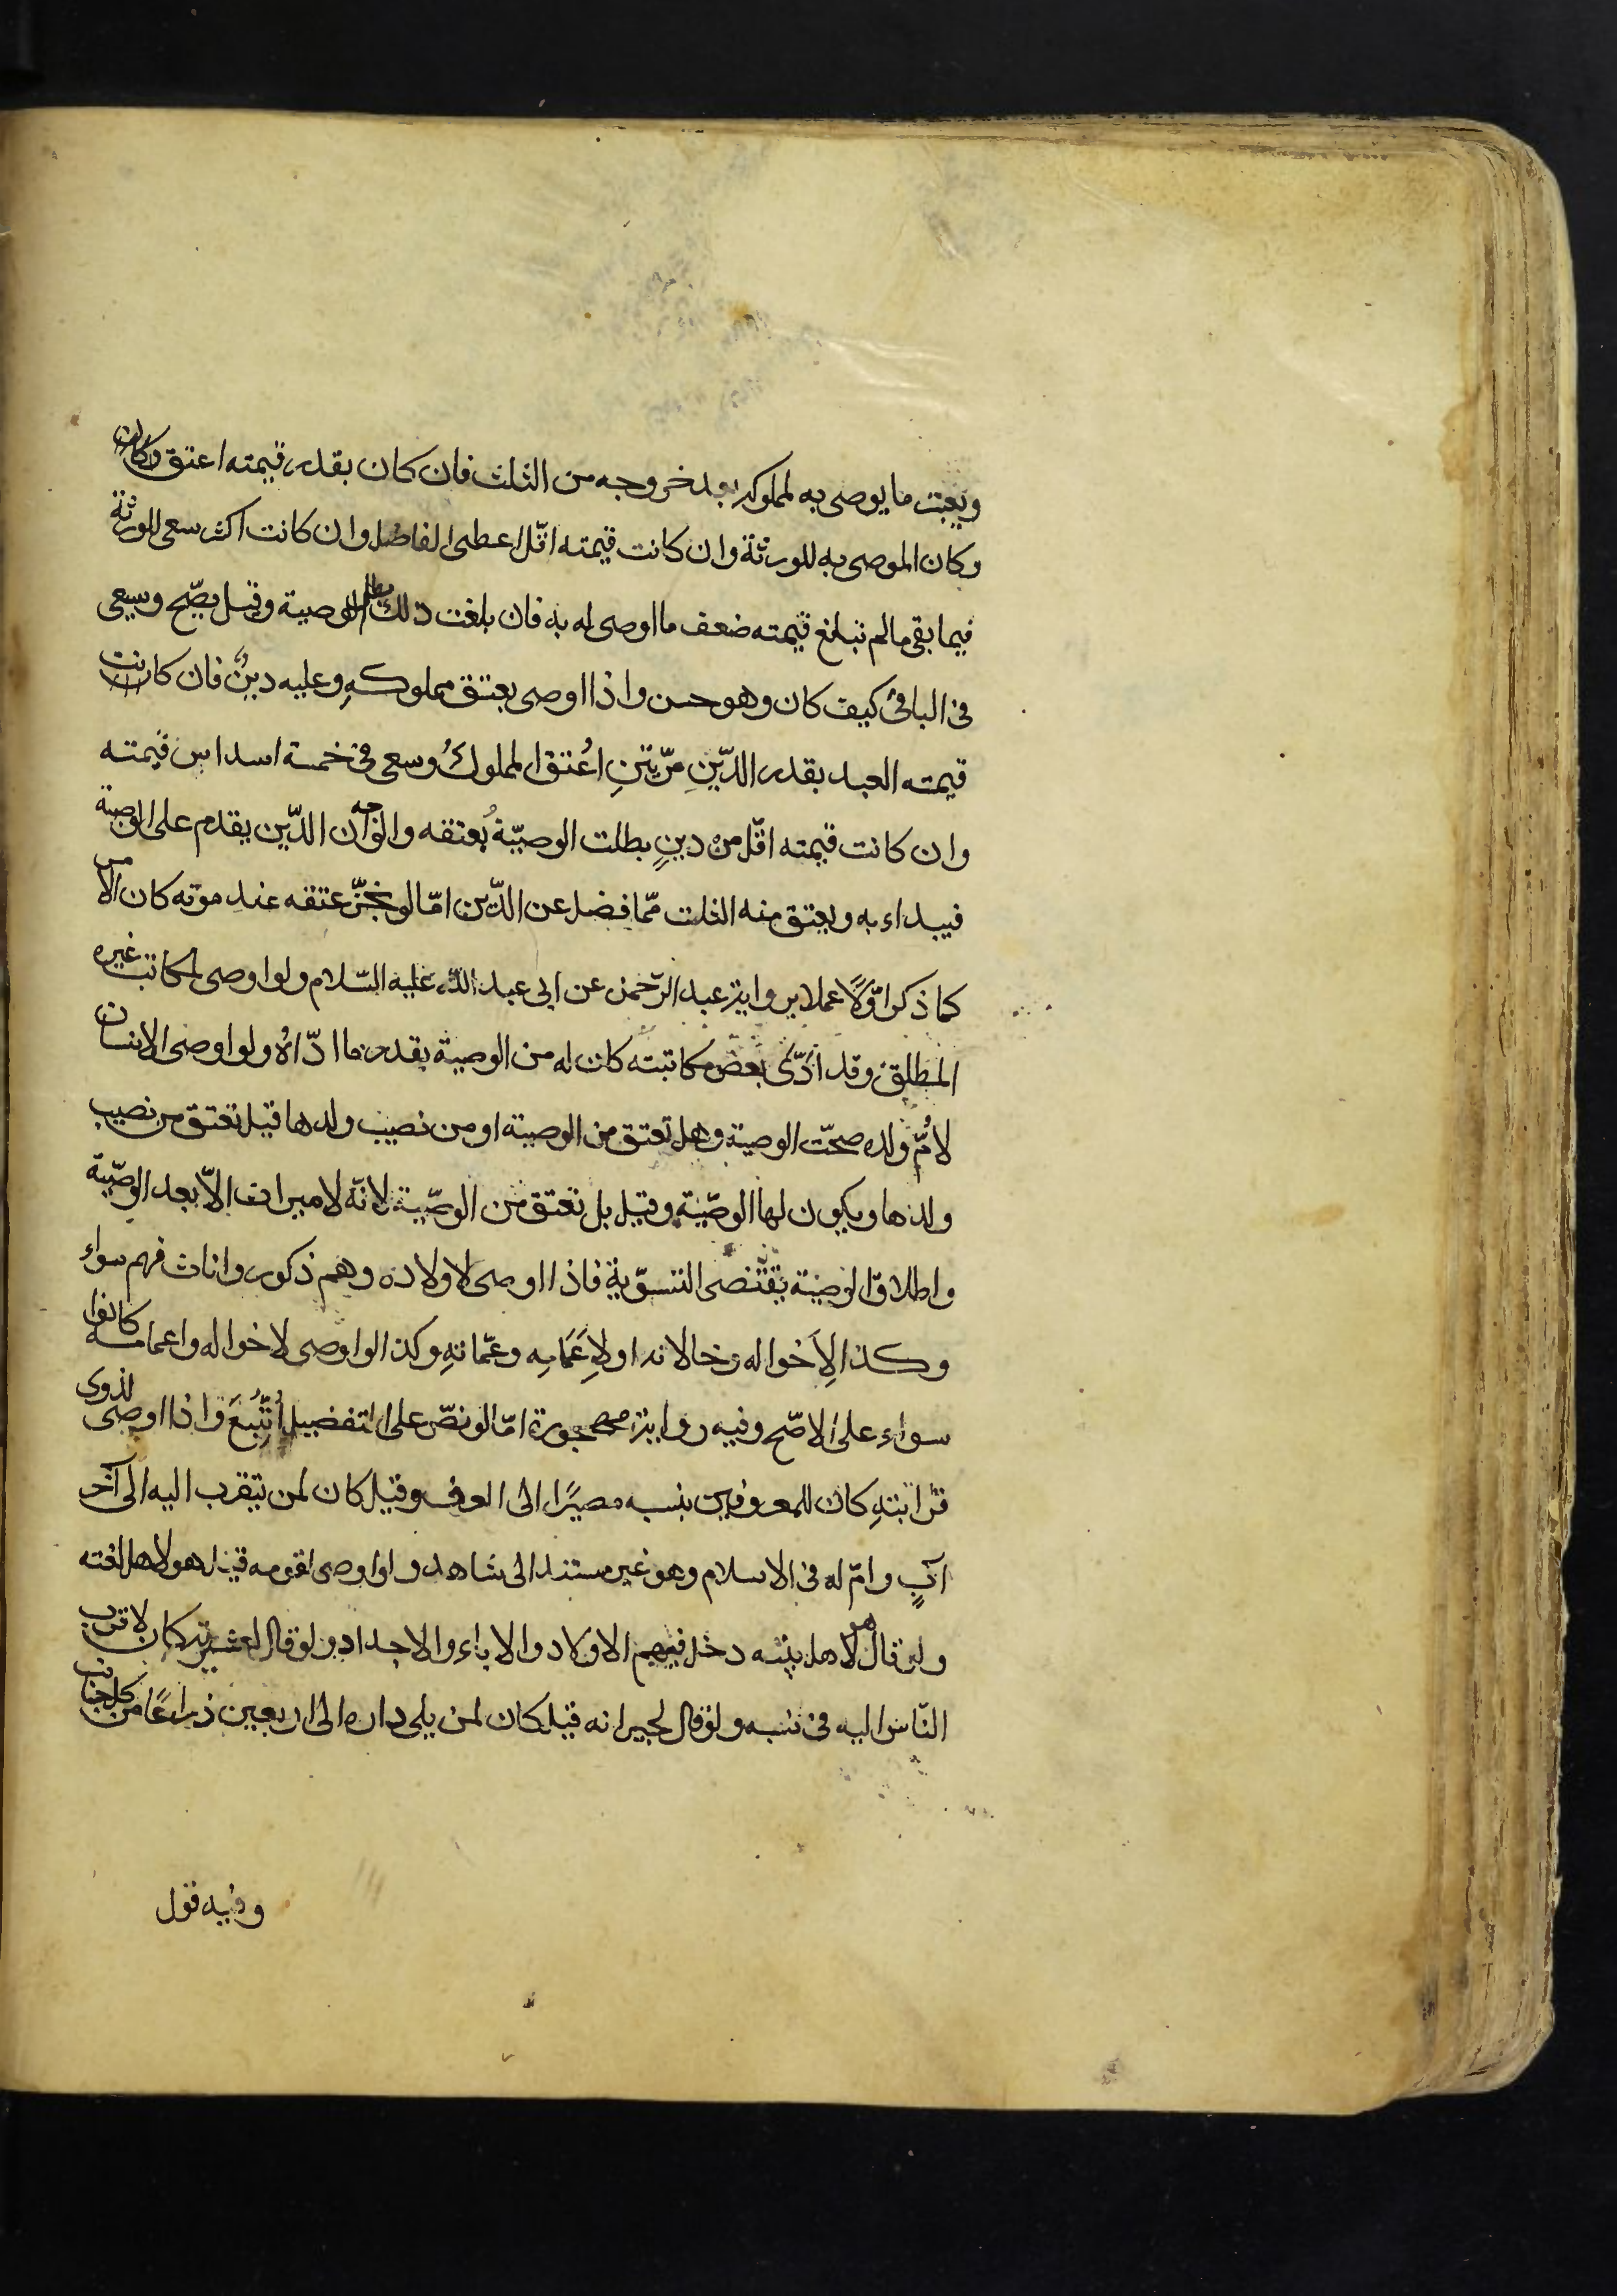 ويعبت ما يوصى به لمملوكه بعد خروجه من الثلث فان كان بقدر قيمته اعتق وكان
وكان الموصى به للورثة وان كانت قيمته اقّل اعطى الفاضل وان كانت اكثر سعى للورثة
فيما بقى مالم تبلغ قيمته ضعف ما اوصى له به فان بلغت ذلك بطلت الوصية وقيل يصّح ويسعى
فى الباقى كيف كان وهو حسن واذا اوصى بعتق مملوكهِ وعليه دينٌ فان كانت
قيمته العبد بقدر الدّينِ مرّتينِ اُعتق المملوكُ وسعى فى خمسة اسداس قيمته
وان كانت قيمته اقّل من دينٍ بطلت الوصيّة بُعتقه والوجه ان الدّين يقدم على الوصية
فيبداء به ويعتق منه الثلث ممّا فضل عن الدّين امّا لو نجّز عتقه عند موته كان الامر
كما ذكر اوّلًا عملا برواية عبد الرّحمن عن ابى عبد الله عليه السّلام ولو اوصى لمكاتب غيره
المطلق وقد ادّى بعض مكاتبته كان له من الوصية بقدر ما ادّاهُ ولو اوصى الانسان
لاُمّ ولده صحّت الوصية وهل تعتق من الوصية او من نصيب ولدها قيل تعتق من نصيب
ولدها ويكون لها الوصّية وقيل بل تعتق من الوصّية لانّه لا ميراث الاّ بعد الوصّية
واطلاق الوصية يقتضى التسوّية فاذا اوصى لاولاده وهم ذكور واناث فهم سواء
وكذا لِاَخواله وخالاته او لِاَعمَامِه وعمّاتهِ وكذا لو اوصى لاخواله واعمامه كانوا
سواء على الاصّح وفيه رواية مهجورة امّا لو نصّ على التفضيل اُتُّبعَ واذا اوصى لذوى
قرابتهِ كان للمعروفين بنسبه مصيرًا الى العرف وقيل كان لمن يتقرب اليه الى آخر
آبٍ وامّ له فى الاسلام وهو غير مستند الى شاهد ولو اوصى لقومه قيل هو لاهل لغته
ولو قال لاهل بيته دخل فيهم الاولاد والاباء والاجداد ولو قال لعشيرته كان لاقرب
النّاس اليه فى نسبه ولو قال لجيرانه قيل كان لمن يلى داره الى اربعين ذراعًا من كل جانب
وفيه قول